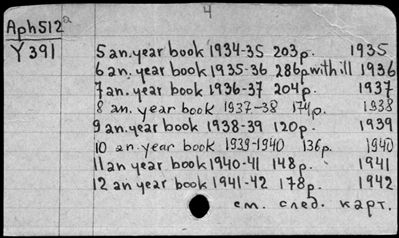 4
Aph512a
Y 391
5 an. year book 1934-35 203p. 1935
6 an. year book 1935-36 286p with ill 1936
7 an. year book 1936-37 204p. 1937
8 an. year book 1937-38 174p. 1938
9 an. year book 1938-39 120p. 1939
10 an. year book 1939-1940 136p. 1940
11 an year book 1940-41 148p. 1941
12 an year book 1941-42 178p. 1942
см. след. карт.